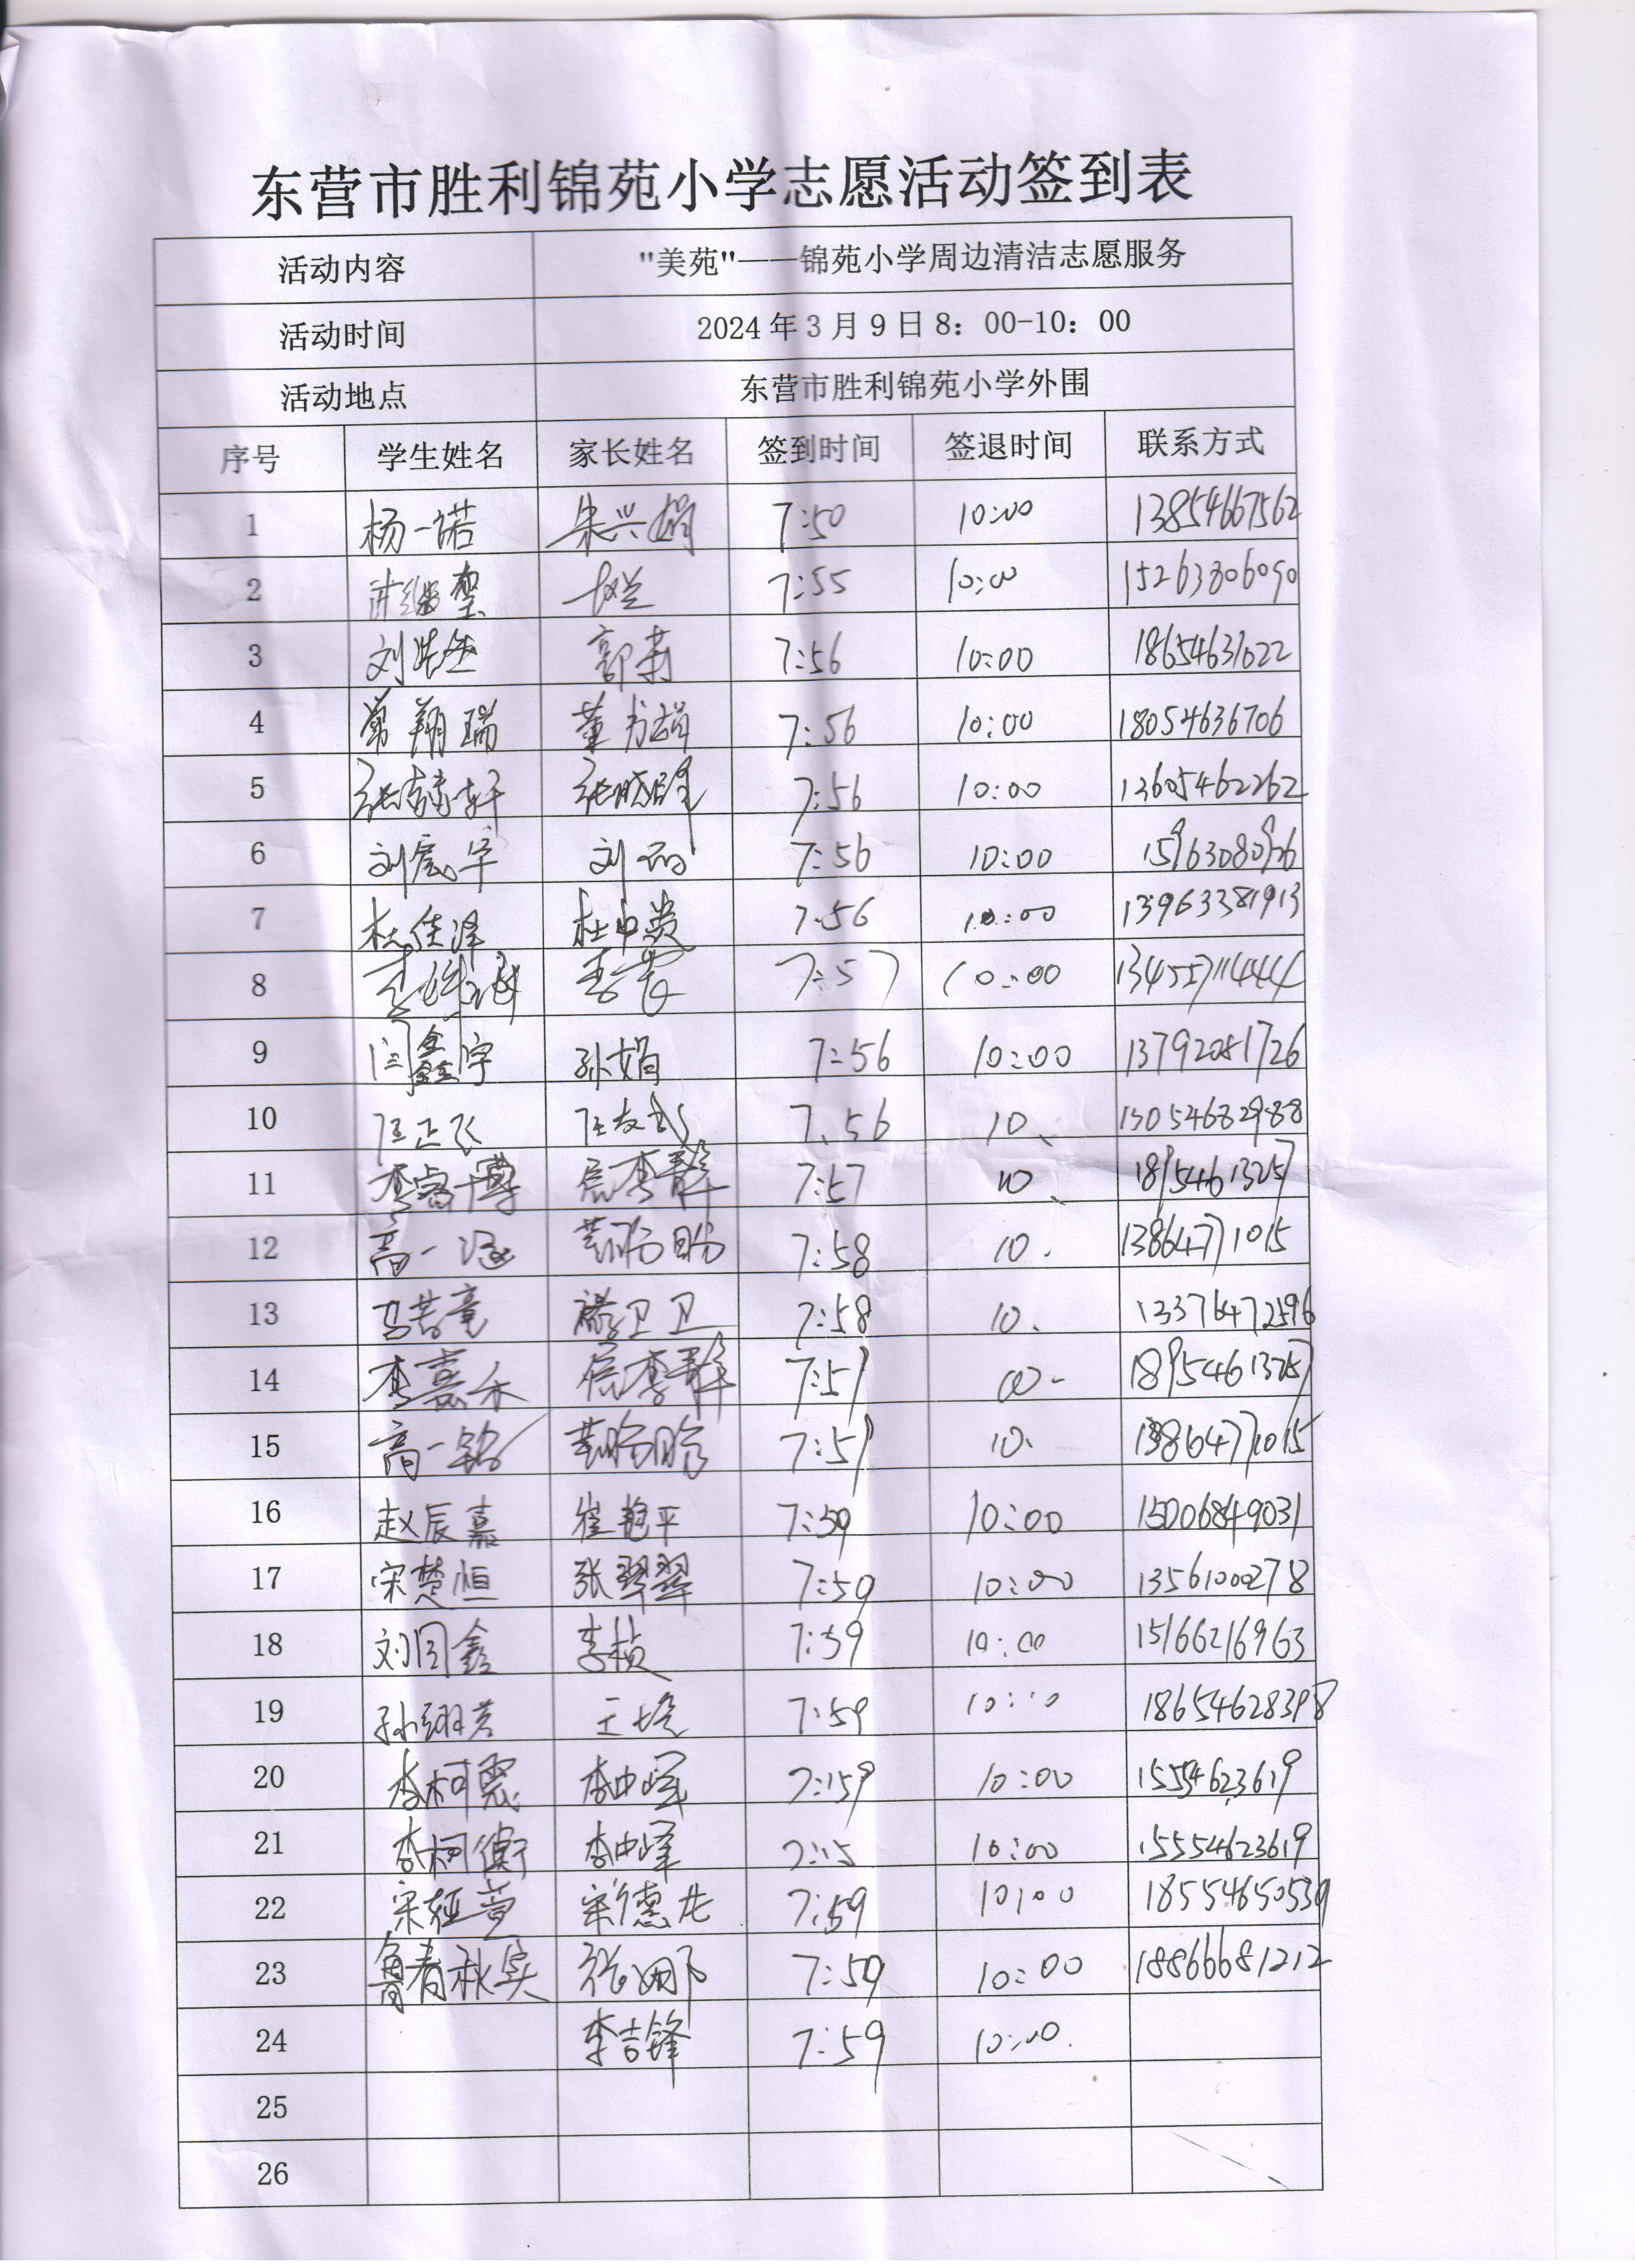 东营市胜利锦苑小学志愿活动签到表
活动内容 "美苑"——锦苑小学周边清洁志愿服务
活动时间 2024年3月9日8：00-10：00
活动地点 东营市胜利锦苑小学外围
序号 学生姓名 家长姓名 签到时间 签退时间 联系方式
1 杨一诺 朱兴娟 7:50 10:00 13854667562
2 7:55 10:00 15263806090
3 刘浩 郭莉 7:56 10:00 18654631622
4 翔瑞 董 7:56 10:00 18054636706
5 张 轩 张晓 7:56 10:00 13605462262
6 刘 宇 刘 7:56 10:00 15963080926
7 杜佳泽 杜中贵 7:56 10:00 13963381913
8 李 7:57 10:00
9 闫鑫宇 孙娟 7:56 10:00 13792081726
10 任正飞 任友武 7:56 10、 13054682988
11 李睿博 7:57 10、 18954613257
12 高一涵 7:58 10. 13864771015
13 马若 滕卫卫 7:58 10. 13376472596
14 李嘉禾 7:57 10-
15 高一铭 7:57 10. 13864771015
16 赵辰嘉 崔艳平 7:59 10:00 15006849031
17 宋楚恒 张翠翠 7:59 10:00 13561000278
18 刘同鑫 李桢 7:59 10:00 15166216963
19 孙翊 王 7:59 18654628398
20 李柯 李中峰 7:59 10:00 15554623619
21 李柯衡 李中峰 10:00 15554623619
22 宋 萱 宋德 7:59 10:00 18554650539
23 鲁春秋实 张娜 7:59 10:00 18866681212
24 李吉锋 7:59 10:00.
25
26